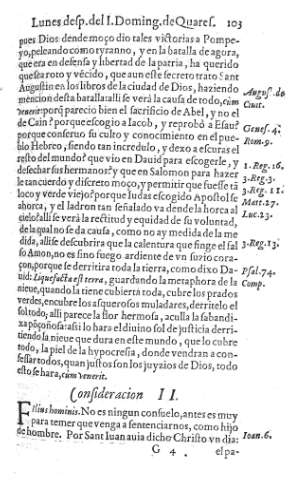 Lunes desp. del I. Doming. de Quares. 103
pues Dios: dende moço dio tales victorias a Pompe-
yo, peleando como tyranno, y en la batalla de agora,
que era en defensa y libertad de la patria, ha querido
que sea roto y vécido, que aun este secreto trato Sant
Augustin en los libros de la ciudad de Dios, haziendo
mencion desta batalla: alli se verà la causa de todo, cùm
venerit: porq̃ parecio bien el sacrificio de Abel, y no el
de Cain? porque escogio a Iacob, y reprobò a Esau?
porque conseruo su culto y conocimiento en el pue-
blo Hebreo, siendo tan incredulo, y dexo a escuras el
resto del mundo? que vio en Dauid para escogerle, y
desechar sus hermanos? y que en Salomon para hazer
le tan cuerdo y discreto moço, y permitir que fuesse tã
loco y verde viejo? porque Iudas escogido Apostol se
ahorca, y el ladron tan señalado va dende la horca al
cielo? alli se verà la rectitud y equidad de su voluntad,
de la qual no se da causa, como no ay medida de la me
dida, alli se descubrira que la calentura que finge el fal
so Amon, no es sino fuego ardiente de vn suzio cora-
çon, porque se derritira toda la tierra, como dixo Da-
uid: Liquefacta est terra, guardando la metaphora de la
nieue, quando la tiene cubierta toda, cubre los prados
verdes, encubre los asquerosos muladares, derritelo el
sol todo; alli parece la flor hermosa, aculla la sabandi-
xa põçoñosa: assi lo hara el diuino sol de justicia derri-
tiendo la nieue que dura en este mundo, que lo cubre
todo, la piel de la hypocresia, donde vendran a con-
fessar todos, quan justos son los juyzios de Dios, todo
esto se hara, cùm venerit.
Consideracion II.
Filius hominis. No es ningun consuelo, antes es muy
para temer que venga a sentenciarnos, como hijo
de hombre. Por Sant Iuan auia dicho Christo vn dia:
G 4. el pa-
August. de
Ciuit.
Genes. 4.
Rom. 9.
1. Reg. 16.
3. Reg. 3.
3. Reg. 11.
Matt. 27.
Luc. 23.
3. Reg. 13.
Psal. 74.
Comp.
Ioan. 6.